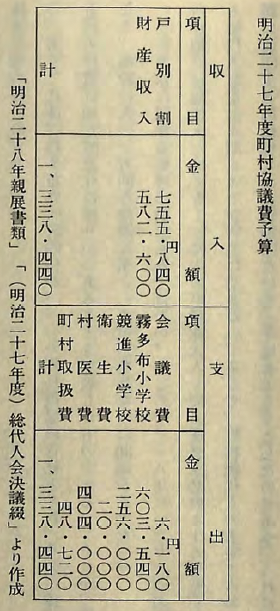 明治二十七年度町村協議費予算
収入
項目 金額
戸別割 七五五・八四〇円
財産収入 五八二・六〇〇
計 一、三三八・四四〇
支出
項目 金額
会議費 六・一八〇円
霧多布小学校 六〇三・五四〇
競進小学校 二五六・〇〇〇
衛生費 二〇・〇〇〇
村医費 四〇四・〇〇〇
町村取扱費 四八・七二〇
計 一、三三八・四四〇
「明治二十八年親展書類」 「(明治二十七年度) 総代人会決議綴」より作成